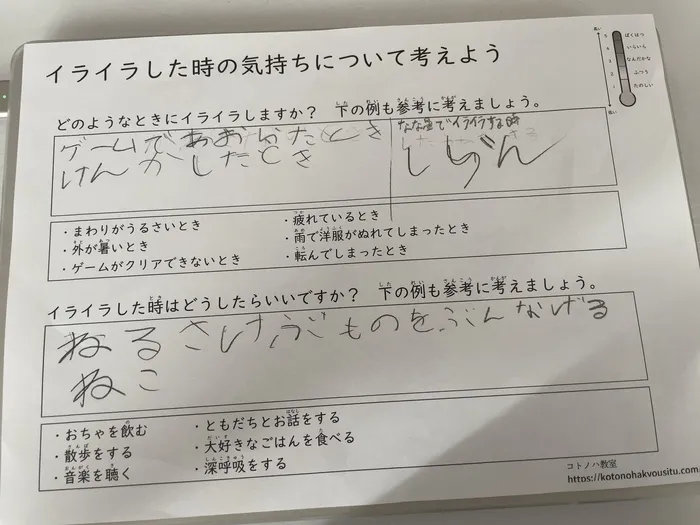 イライラした時の気持ちについて考えよう
高い
5 ばくはつ
4 いらいら
3 なんだかな
2 ふつう
1 たのしい
低い
どのようなときにイライラしますか？ 下の例も参考に考えましょう。
ゲームであおられたとき
けんかしたとき
でイライラする時
・まわりがうるさいとき
・外が暑いとき
・ゲームがクリアできないとき
・疲れているとき
・雨で洋服がぬれてしまったとき
・転んでしまったとき
イライラした時はどうしたらいいですか？ 下の例も参考に考えましょう。
ねる さけぶ ものをぶんなげる
ねこ
・おちゃを飲む
・散歩をする
・音楽を聴く
・ともだちとお話をする
・大好きなごはんを食べる
・深呼吸をする
コトノハ教室
https://kotonohakyousitu.com